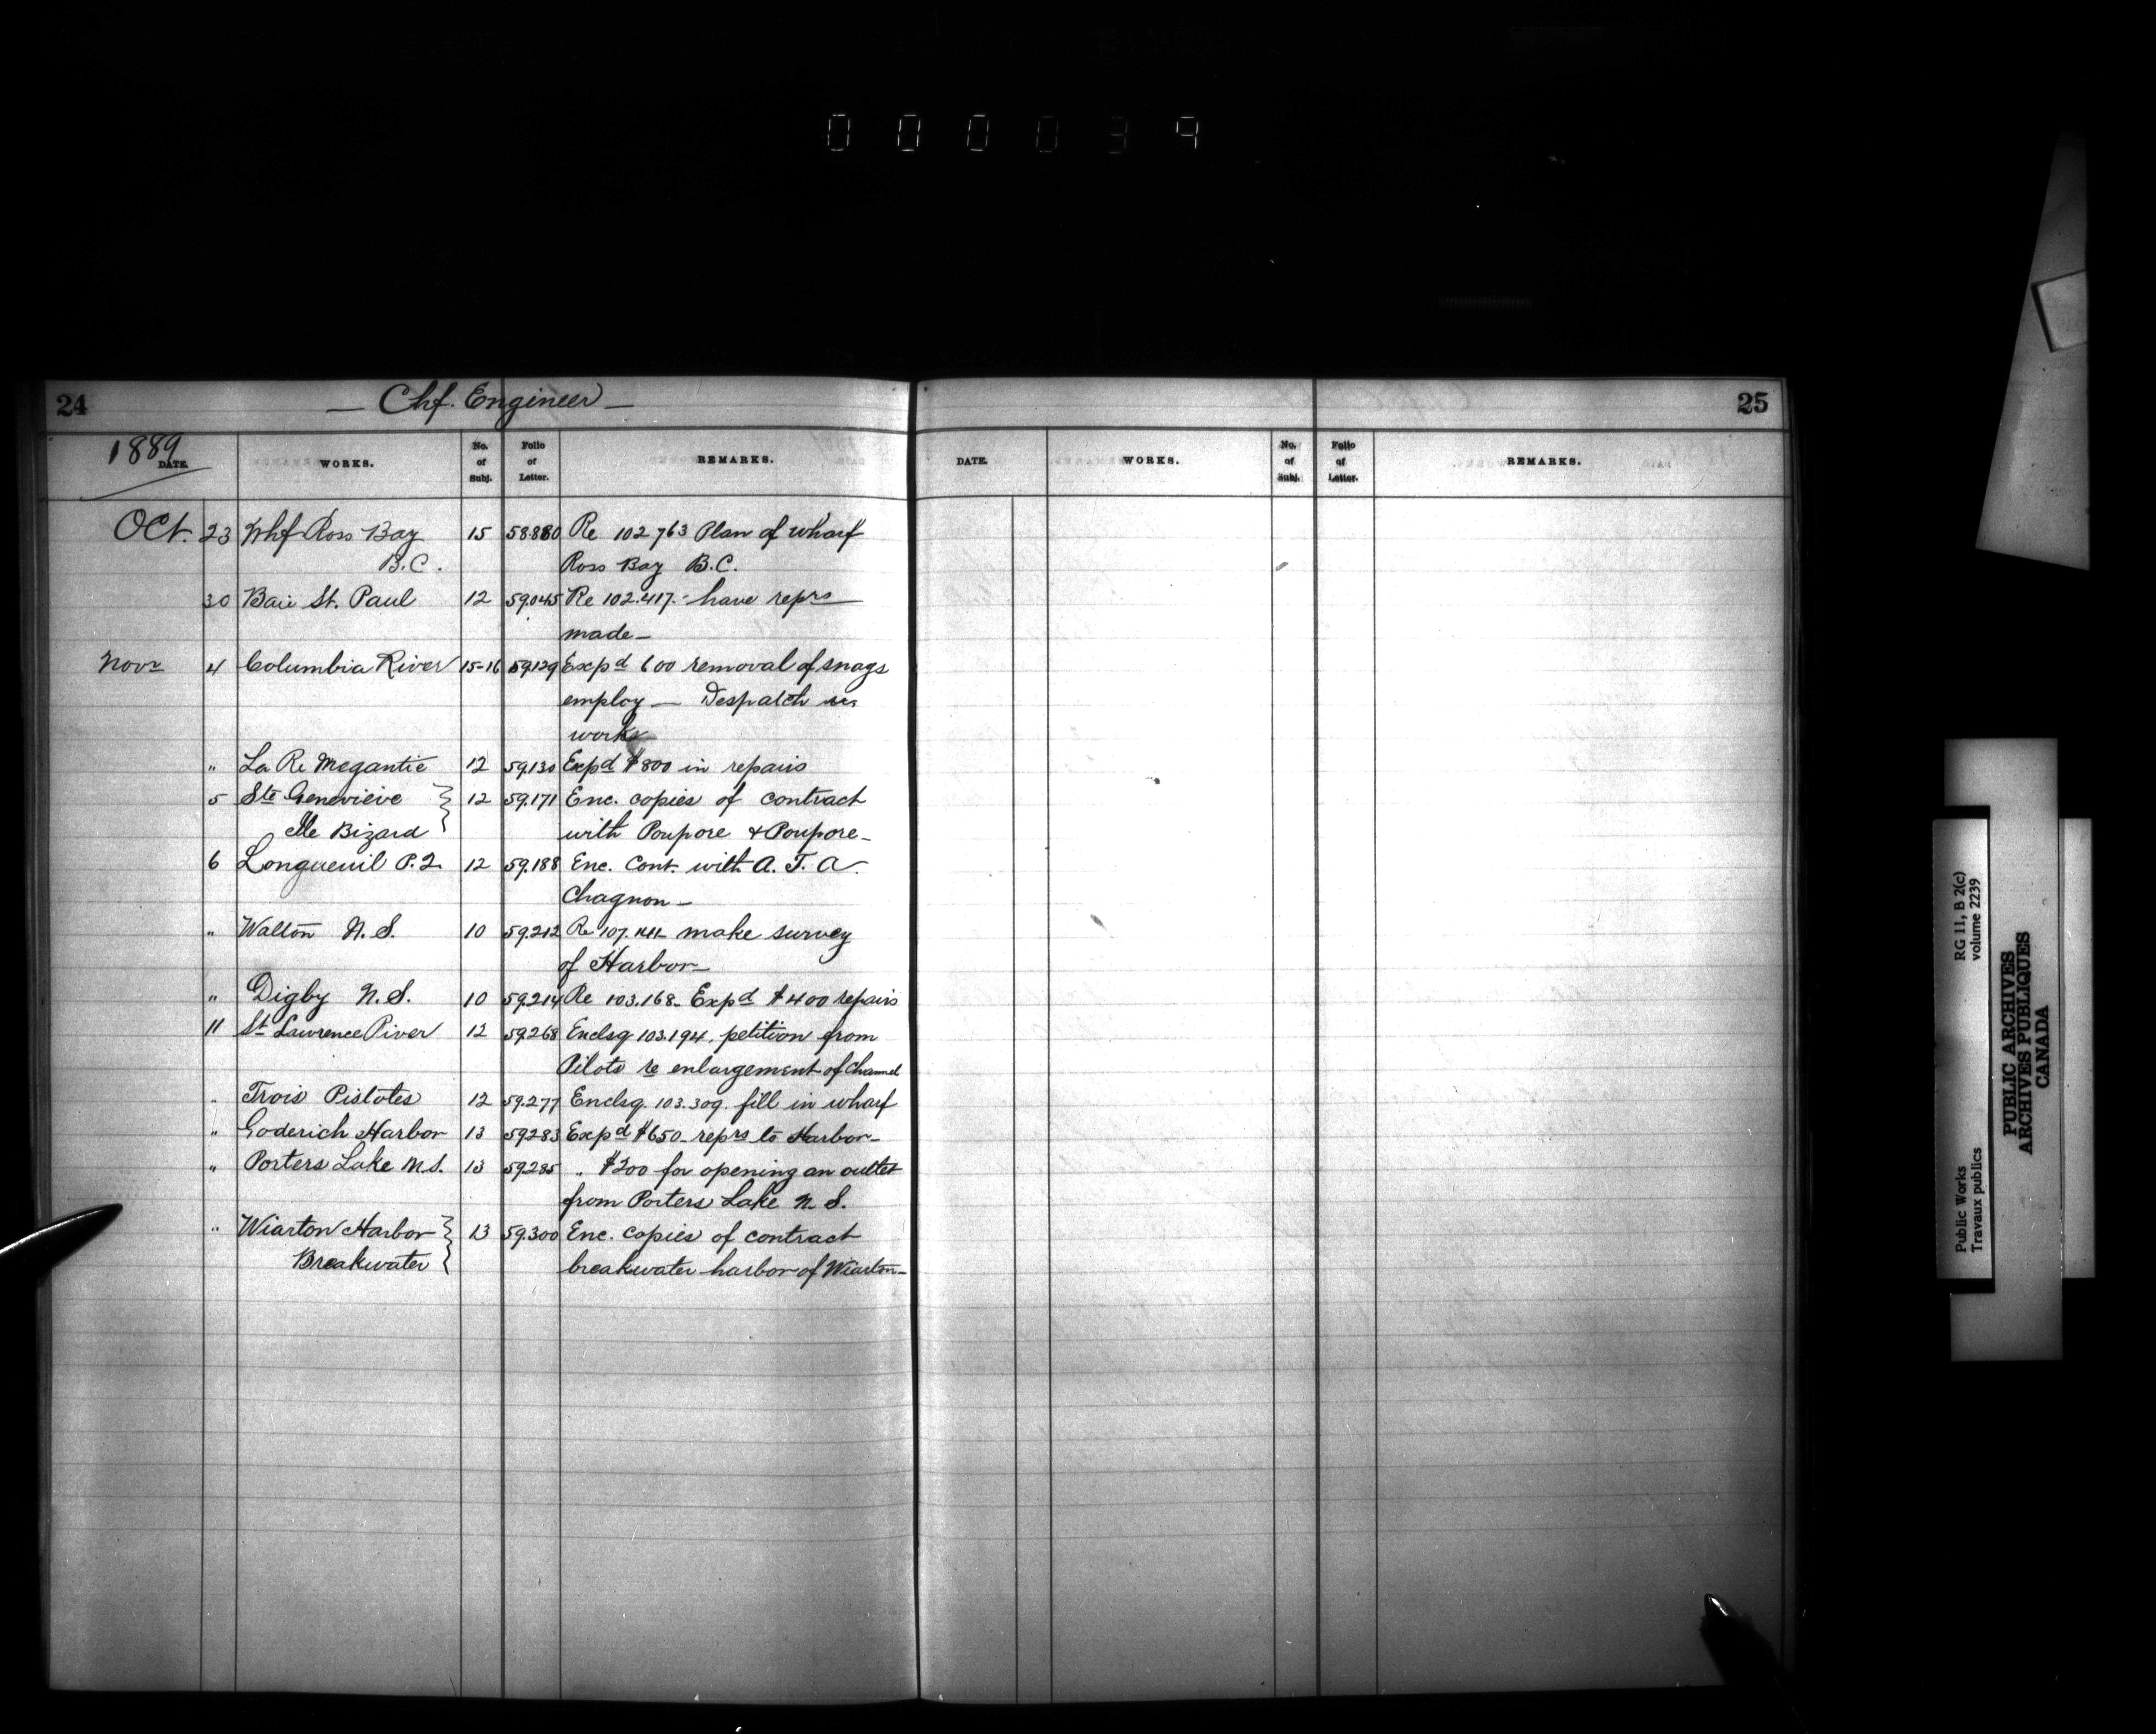 000039
24 — Chf. Engineer — 25
1889
DATE. WORKS. No. of Subj. Folio of Letter. REMARKS. DATE. WORKS. No. of Subj. Folio of Letter. REMARKS.
Oct. 23 Whf Ross Bay 15 58.880 Re 102763 Plan of wharf
B.C. Ross Bay B.C.
30 Baie St. Paul 12 59.045 Re 102.417.- have reprs
made—
Novr 4 Columbia River 15-16 59.129 Expd 600 removal of snags
employ — Despatch
works
" La Re Megantic 12 59.130 Expd $800 in repairs
5 Ste Genevieve } 12 59.171 Enc. copies of contract
Ile Bizard } with Poupore & Poupore—
6 Longueuil P.Q. 12 59.188 Enc. Cont. with A. T. A.
Chagnon—
" Walton N.S. 10 59.212 Re make survey
of Harbor—
" Digby N.S. 10 59.214 Re 103.168- Expd $400 repairs
11 St Lawrence River 12 59.268 Enclsg 103.194. petition from
Pilots re enlargement of Channel
" Trois Pistoles 12 59.277 Enclsg. 103.309. fill in wharf
" Goderich Harbor 13 59.283 Expd $650- reprs to Harbor—
" Porters Lake N.S. 13 59.285 " $200 for opening an outlet
from Porters Lake N.S.
" Wiarton Harbor } 13 59.300 Enc. copies of contract
Breakwater } breakwater harbor of Wiarton—
Public Works
Travaux publics
RG 11, B 2(c)
volume 2239
PUBLIC ARCHIVES
ARCHIVES PUBLIQUES
CANADA